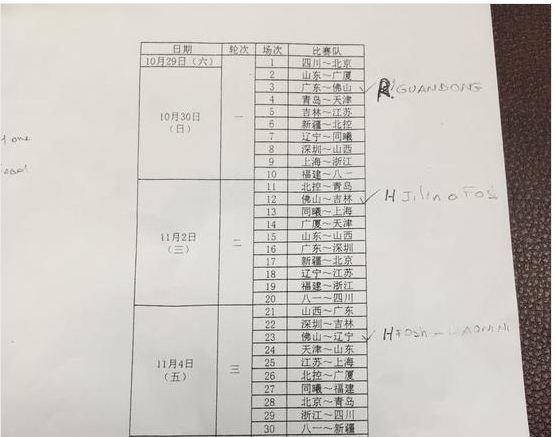 日期 轮次 场次 比赛队
10月29日（六） 一 1 四川～北京
10月30日（日） 2 山东～广厦
3 广东～佛山 R! GUANDONG
4 青岛～天津
5 吉林～江苏
6 新疆～北控
7 辽宁～同曦
8 深圳～山西
9 上海～浙江
10 福建～八一
11月2日（三） 二 11 北控～青岛
12 佛山～吉林 H Jilin
13 同曦～上海
14 广厦～天津
15 山东～山西
16 广东～深圳
17 新疆～北京
18 辽宁～江苏
19 福建～浙江
20 八一～四川
11月4日（五） 三 21 山西～广东
22 深圳～吉林
23 佛山～辽宁 H Fosh
24 天津～山东
25 江苏～上海
26 北控～广厦
27 同曦～福建
28 北京～青岛
29 浙江～四川
30 八一～新疆